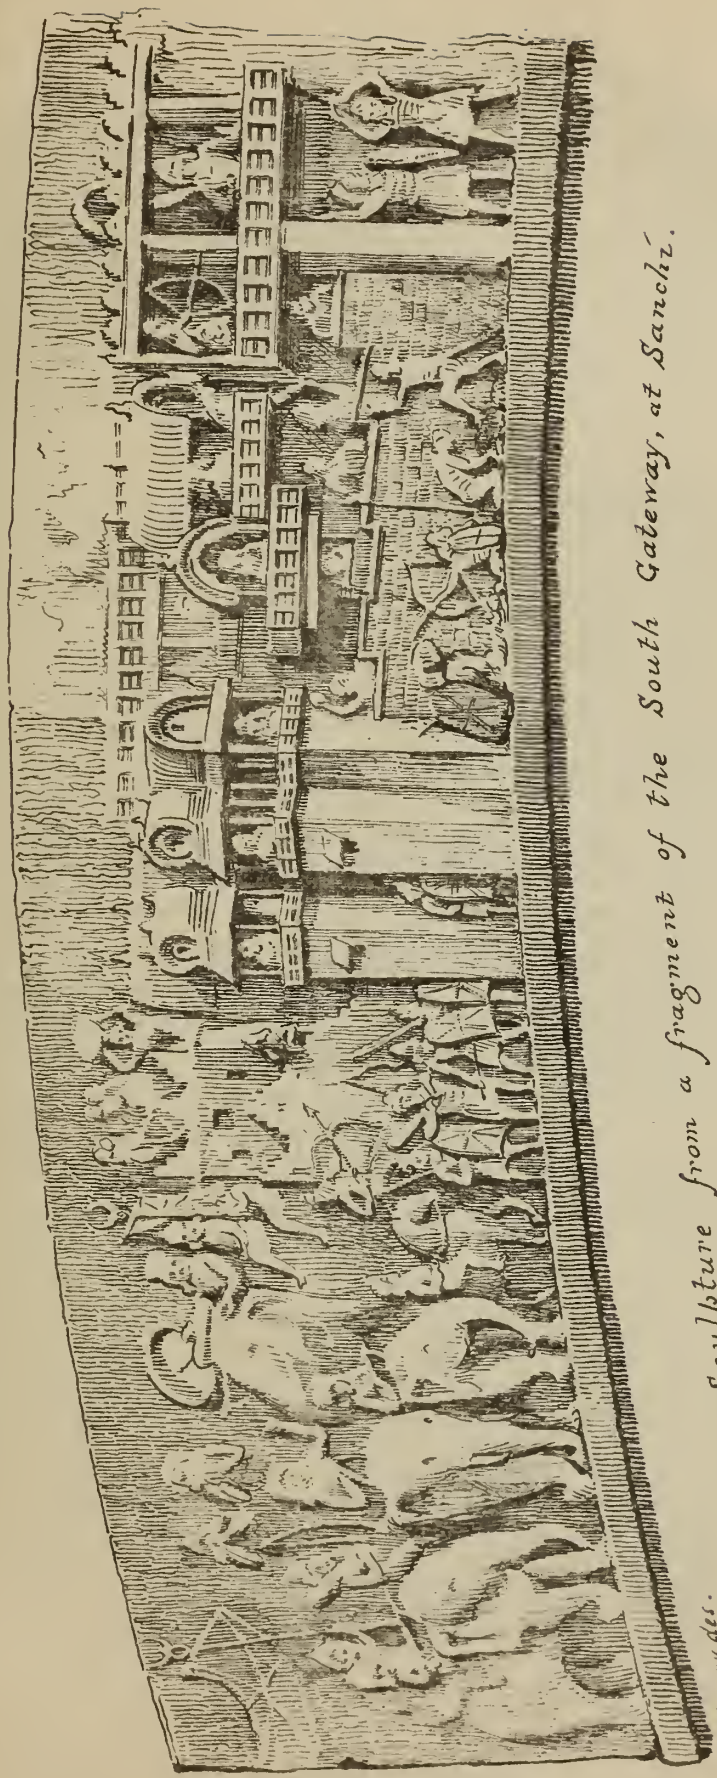 Sculpture from a fragment of the South Gateway, at Sanchí.